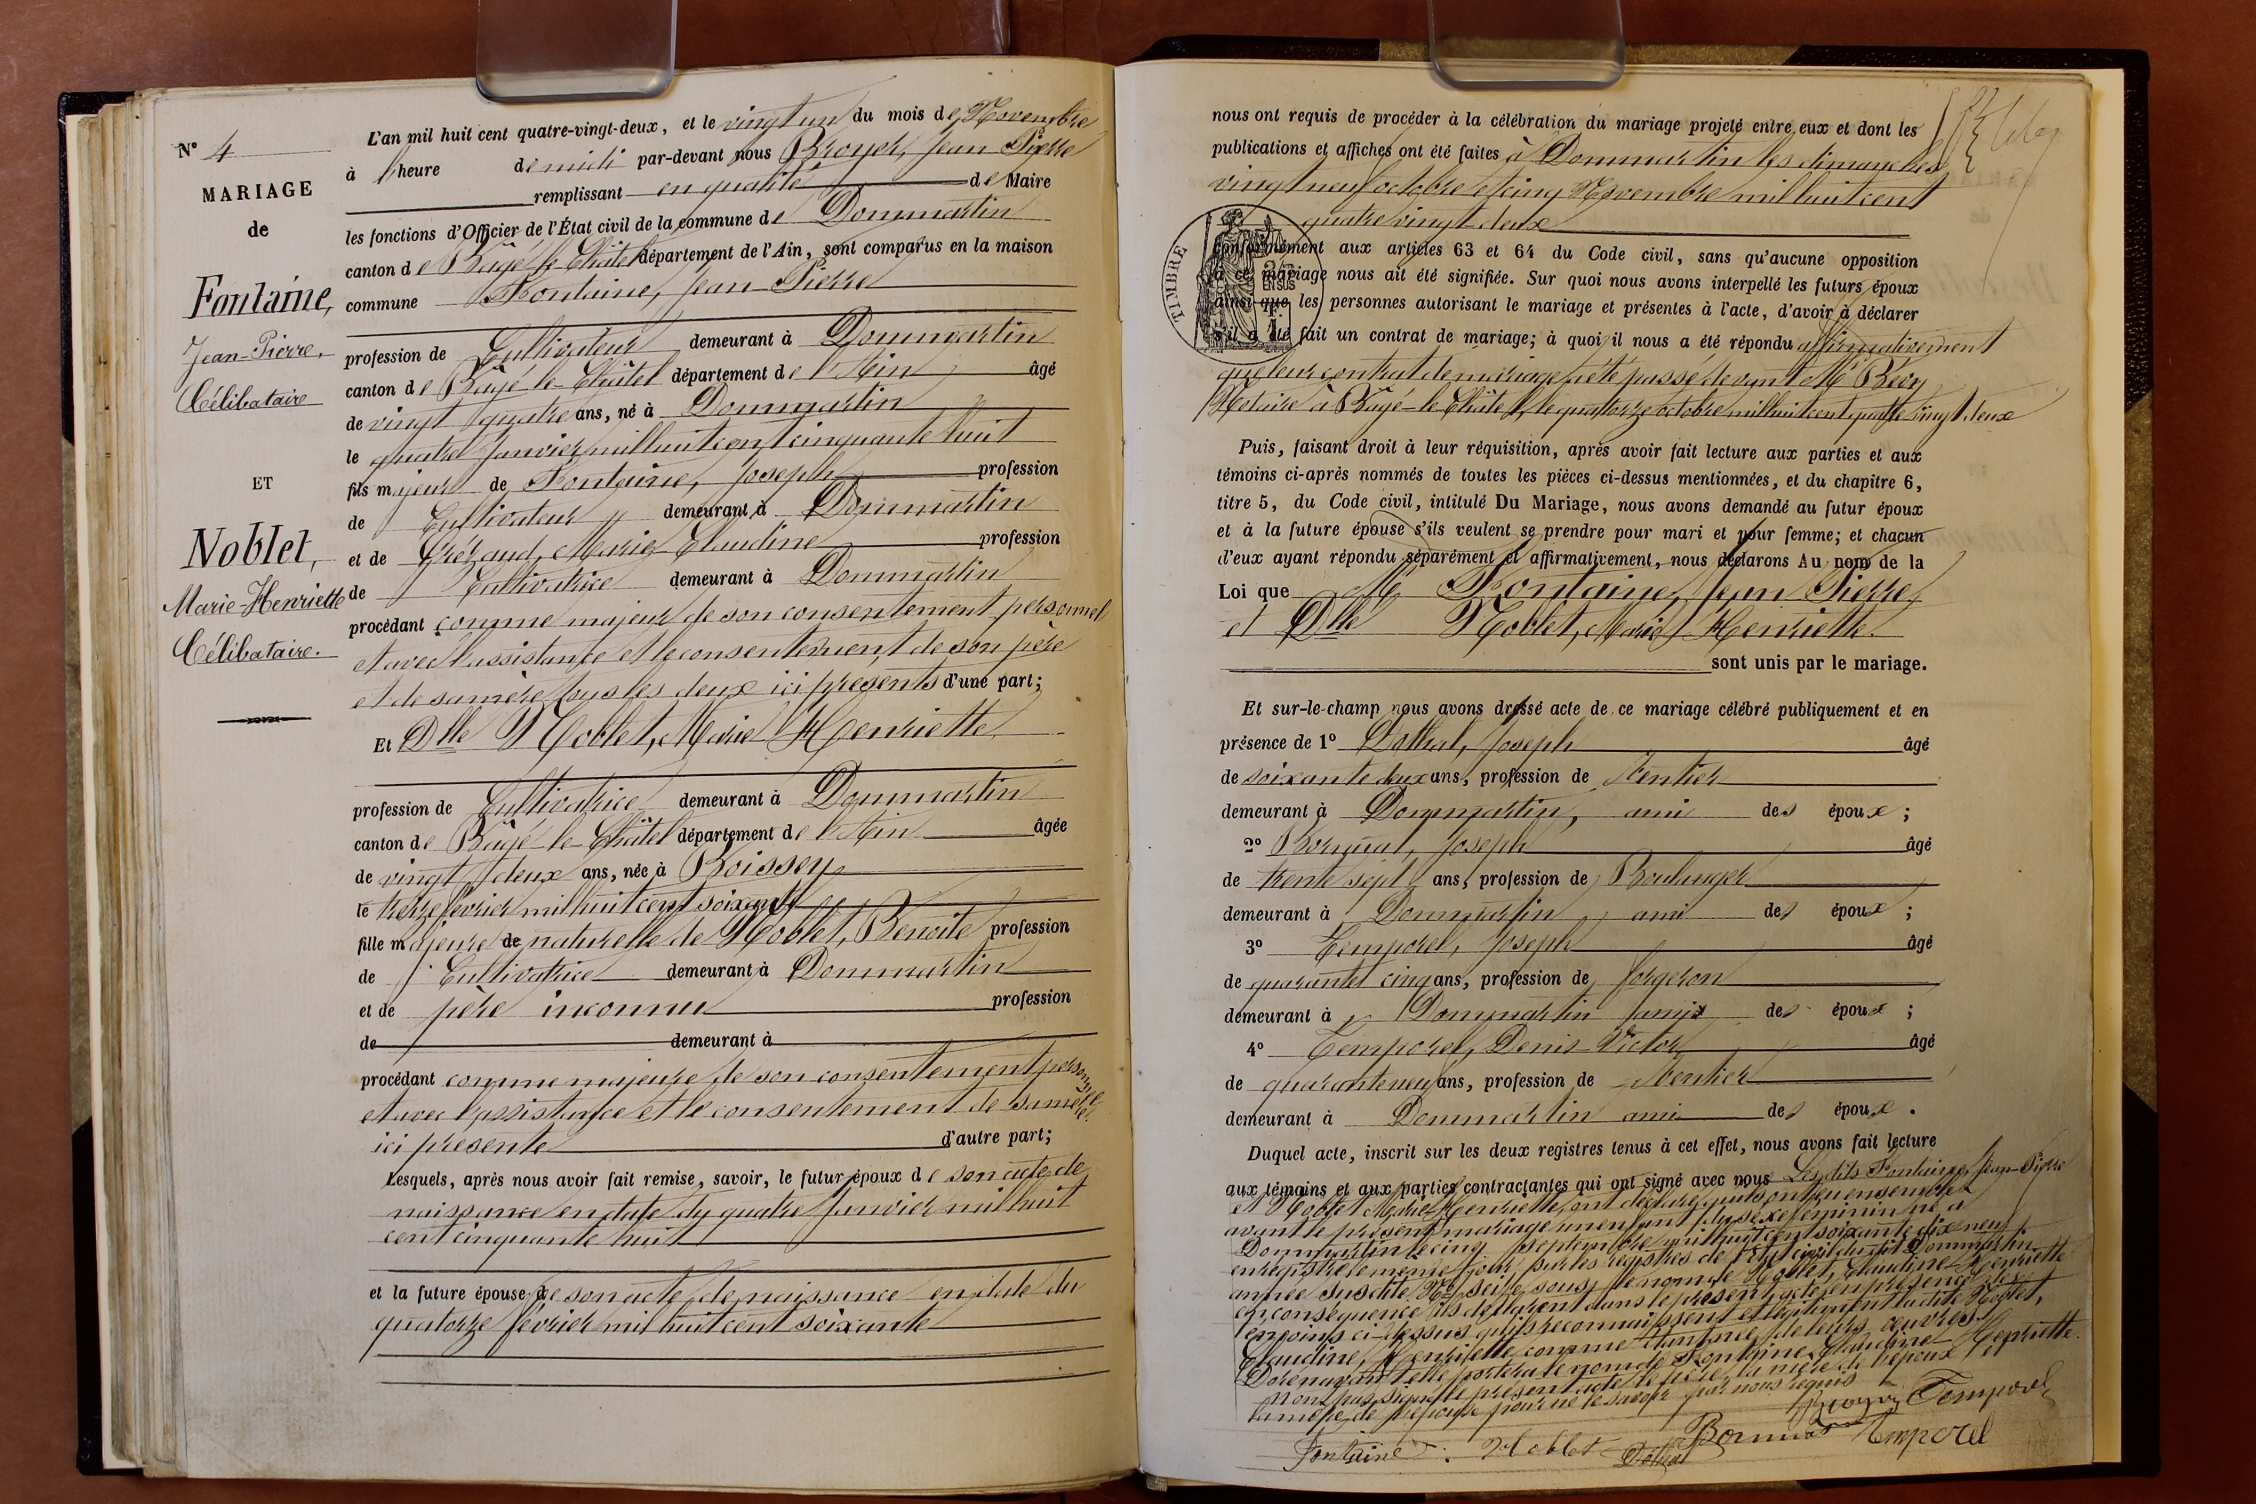 N° 4
MARIAGE
de
Fontaine,
Jean-Pierre,
Célibataire
ET
Noblet,
Marie-Henriette
Célibataire.
L'an mil huit cent quatre-vingt-deux, et le vingt un du mois de Novembre
à heure de midi par-devant nous Broyer, Jean Pierre
remplissant en qualité de Maire
les fonctions d'Officier de l'État civil de la commune de Dommartin
canton de Bâgé-le-Châtel département de l'Ain, sont comparus en la maison
commune Fontaine, Jean Pierre
profession de Cultivateur demeurant à Dommartin
canton de Bâgé-le-Châtel département de l'Ain âgé
de vingt quatre ans, né à Dommartin
le quatre Janvier mil huit cent cinquante huit
fils majeur de Fontaine, Joseph profession
de Cultivateur demeurant à Dommartin
et de Crézaud, Marie Claudine profession
de Cultivatrice demeurant à Dommartin
procédant comme majeur de son consentement personnel
et avec l'assistance et le consentement de son père
et de sa mère tous les deux ici présents d'une part;
Et Dlle Noblet, Marie Henriette
profession de Cultivatrice demeurant à Dommartin
canton de Bâgé-le-Châtel département de l'Ain âgée
de vingt deux ans, née à Boissey
le treize février mil huit cent soixante
fille majeure de naturelle de Noblet, Benoite profession
de Cultivatrice demeurant à Dommartin
et de père inconnu profession
de demeurant à
procédant comme majeure de son consentement personnel
et avec l'assistance et le consentement de sa mère
ici présente d'autre part;
Lesquels, après nous avoir fait remise, savoir, le futur époux de son acte de
naissance en date du quatre Janvier mil huit
cent cinquante huit
et la future épouse de son acte de naissance en date du
quatorze février mil huit cent soixante
nous ont requis de procéder à la célébration du mariage projeté entre eux et dont les
publications et affiches ont été faites à Dommartin les dimanches
vingt neuf octobre et cinq Novembre mil huit cent
quatre vingt deux
conformément aux articles 63 et 64 du Code civil, sans qu'aucune opposition
à ce mariage nous ait été signifiée. Sur quoi nous avons interpellé les futurs époux
ainsi que les personnes autorisant le mariage et présentes à l'acte, d'avoir à déclarer
s'il a été fait un contrat de mariage; à quoi il nous a été répondu affirmativement
que leur contrat de mariage a été passé devant Me
Notaire à Bâgé-le-Châtel, le quatorze octobre mil huit cent quatre vingt deux
TIMBRE
Puis, faisant droit à leur réquisition, après avoir fait lecture aux parties et aux
témoins ci-après nommés de toutes les pièces ci-dessus mentionnées, et du chapitre 6,
titre 5, du Code civil, intitulé Du Mariage, nous avons demandé au futur époux
et à la future épouse s'ils veulent se prendre pour mari et pour femme; et chacun
d'eux ayant répondu séparément et affirmativement, nous déclarons Au nom de la
Loi que Mr Fontaine, Jean Pierre
et Dlle Noblet, Marie Henriette
sont unis par le mariage.
Et sur-le-champ nous avons dressé acte de ce mariage célébré publiquement et en
présence de 1° Dothal, Joseph âgé
de soixante deux ans, profession de Rentier
demeurant à Dommartin, ami des époux;
2° Joseph âgé
de trente sept ans, profession de Boulanger
demeurant à Dommartin ami des époux;
3° Temporel, Joseph âgé
de quarante cinq ans, profession de forgeron
demeurant à Dommartin ami des époux;
4° Temporel, Denis Victor âgé
de quarante neuf ans, profession de Rentier
demeurant à Dommartin ami des époux.
Duquel acte, inscrit sur les deux registres tenus à cet effet, nous avons fait lecture
aux témoins et aux parties contractantes qui ont signé avec nous Les dits Fontaine, Jean-Pierre
et Noblet Marie Henriette, ont déclaré qu'ils ont eu ensemble
avant le présent mariage un enfant du sexe féminin né à
Dommartin le cinq septembre mil huit cent soixante dix neuf
enregistré le même jour sur les registres de l'état civil dudit Dommartin
année susdite, N° seize sous le nom de Noblet, Claudine Henriette
en conséquence ils déclarent dans le présent acte en présence des
témoins ci-dessus qu'ils reconnaissent et légitiment la dite Noblet,
Claudine, Henriette comme étant née de leurs œuvres.
Dorénavant elle portera le nom de Fontaine Claudine Henriette.
N'ont pas signé le présent acte le père, la mère de l'époux et
la mère de l'épouse pour ne le savoir par nous requis
Broyer Temporel
Fontaine Noblet Dothal Temporel